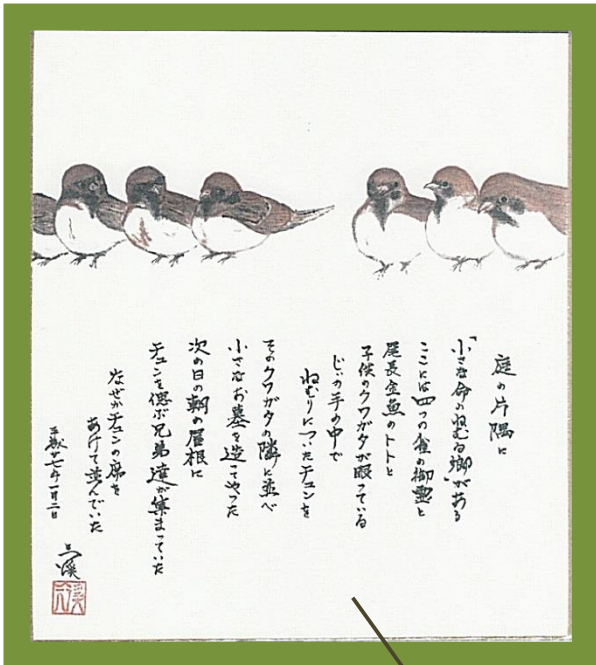 庭の片隅に
「小さな命のねむる郷」がある
ここには四つの雀の御霊と
尾長金魚のトトと
子供のクワガタが眠っている
じいの手の中で
ねむりについたチュンを
そのクワガタの隣に並べ
小さなお墓を造ってやった
次の日の朝の屋根に
チュンを偲ぶ兄弟達が集まっていた
なぜかチュンの席を
あけて並んでいた
平成廿七年一月二日